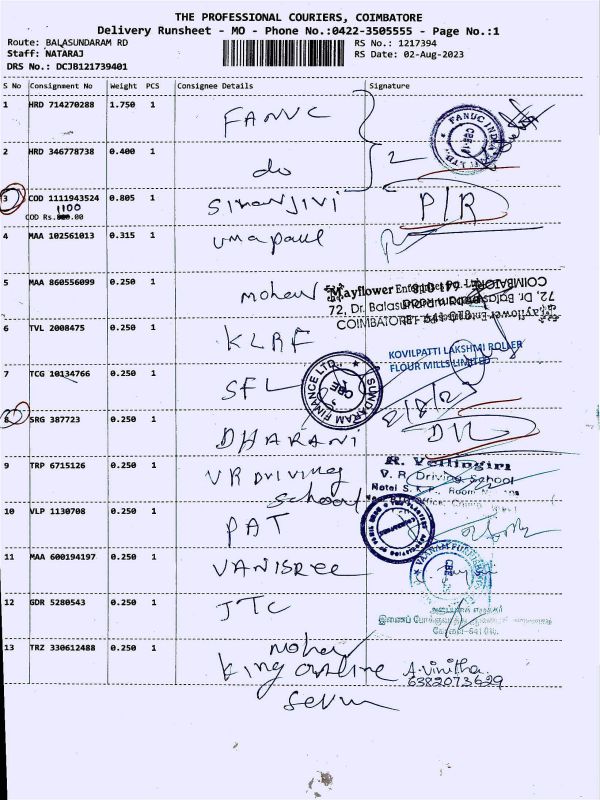 THE PROFESSIONAL COURIERS, COIMBATORE
Delivery Runsheet - MO - Phone No.:0422-3505555 - Page No.:1
Route: BALASUNDARAM RD
Staff: NATARAJ
DRS No.: DCJB121739401
RS No.: 1217394
RS Date: 02-Aug-2023
S No Consignment No Weight PCS Consignee Details Signature
1 HRD 714270288 1.750 1 FANUC
2 HRD 346778738 0.400 1 do 2
3 COD 1111943524 0.805 1 SIRANJIVI P/R
1100
COD Rs. .00
4 MAA 102561013 0.315 1 umapaul
5 MAA 860556099 0.250 1 mohan
Mayflower Enterprises Pvt. Ltd.
72, Dr. Balasundaram Road
COIMBATORE - 641 018
6 TVL 2008475 0.250 1 KLRF
KOVILPATTI LAKSHMI ROLLER
FLOUR MILLS LIMITED
7 TCG 10134766 0.250 1 SFL
SUNDARAM FINANCE LTD.
CBE
8 SRG 387723 0.250 1 DHARANI
9 TRP 6715126 0.250 1 VR DRIVING
school
R. Vellingiri
V. R. Driving School
Hotel S.K.P., Room
10 VLP 1130708 0.250 1 PAT
11 MAA 600194197 0.250 1 VANISREE
12 GDR 5280543 0.250 1 JTC
13 TRZ 330612488 0.250 1 mohan
King online A.Vinitha
6382073629